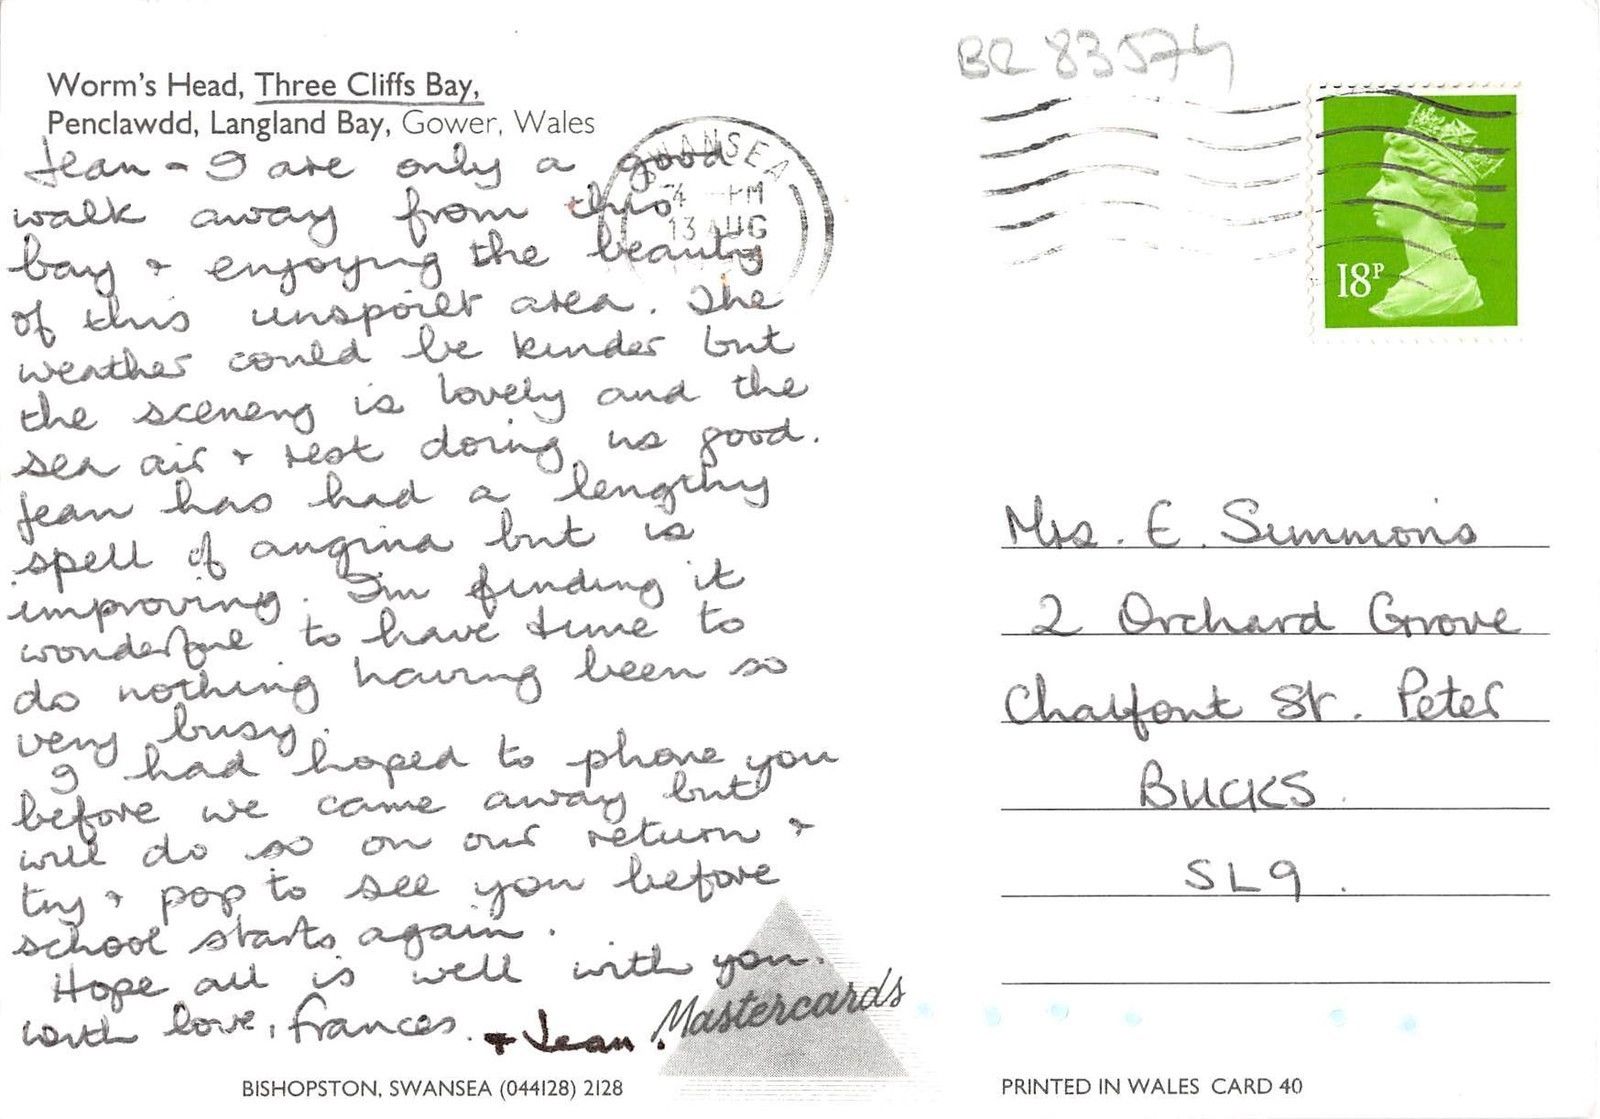 BR 83574
Worm's Head, Three Cliffs Bay,
Penclawdd, Langland Bay, Gower, Wales
SWANSEA
4 PM
13 AUG
18P
Jean - I are only a good
walk away from this
bay + enjoying the beauty
of this unspoilt area. The
weather could be kinder but
the scenery is lovely and the
sea air + rest doing us good.
Jean has had a lengthy
spell of angina but is
improving. I'm finding it
wonderful to have time to
do nothing having been so
very busy.
I had hoped to phone you
before we came away but
will do so on our return +
try + pop to see you before
school starts again.
Hope all is well with you.
with love, Frances. + Jean.
Mrs. E. Simmons
2 Orchard Grove
Chalfont St. Peter
BUCKS.
SL9.
Mastercards
BISHOPSTON, SWANSEA (044128) 2128
PRINTED IN WALES CARD 40